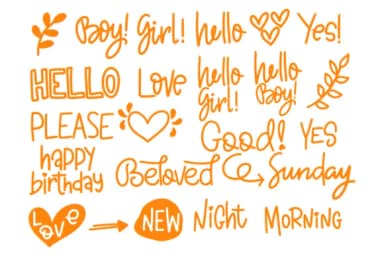 Boy! Girl! hello Yes!
HELLO Love hello Girl! hello Boy!
PLEASE Good! YES
happy birthday Beloved Sunday
Love NEW Night Morning